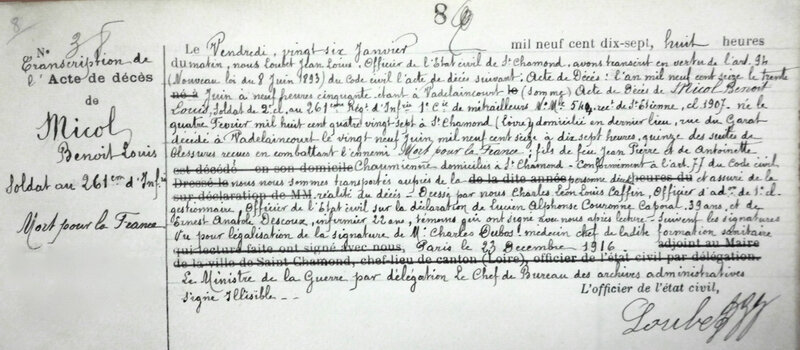 8
8
No 3
Transcription de
l'Acte de décès
de
Micol
Benoit Louis
Soldat au 261em d'Infie
Mort pour la France
Le Vendredi, vingt six Janvier mil neuf cent dix-sept, huit heures
du matin, nous Loubet Jean Louis, Officier de l'Etat civil de St Chamond, avons transcrit en vertu de l'art. 94
(Nouveau loi du 8 Juin 1893) du Code civil l'acte de décès suivant: Acte de Décès: L'an mil neuf cent seize le trente
né à Juin à neuf heures cinquante étant à Vadelaincourt le (somme) Acte de Décès de Micol Benoit
Louis, Soldat de 2e cl. au 261em Régt d'Infie 1e Cie de mitrailleurs No Mle 549, rec. de St Etienne, cl. 1907. né le
quatre Fevrier mil huit cent quatre vingt sept à St Chamond (Loire) domicilié en dernier lieu, rue du Garat
décédé à Vadelaincourt le vingt neuf Juin mil neuf cent seize à dix sept heures, quinze des suites de
blessures recues en combattant l'ennemi Mort pour la France; fils de feu Jean Pierre et de Antoinette
est décédé en son domicile Chaumienne domiciliés à St Chamond - Conformément à l'art. 77 du Code civil
Dressé le nous nous sommes transportés auprès de la de la dite année personne dix heures du et assuré de la
sur déclaration de MM. réalité du décès - Dressé par nous Charles Léon Louis Caffin, Officier d'adon de 1e cl.
gestionnaire Officier de l'Etat civil sur la déclaration de Lucien Alphonse Couronne Caporal 39 ans, et de
Ernest Anatole Descoux, infirmier 22 ans, témoins qui ont signé avec nous après lecture - suivent les signatures
Vu pour légalisation de la signature de Mr Charles Dubos! médecin chef de ladite formation sanitaire
qui lecture faite ont signé avec nous, Paris le 23 Decembre 1916 adjoint au Maire
de la ville de Saint Chamond, chef-lieu de canton (Loire), officier de l'état civil par délégation.
Le Ministre de la Guerre par délégation Le Chef de Bureau des archives administratives
signé Illisible
L'officier de l'état civil,
Loubet